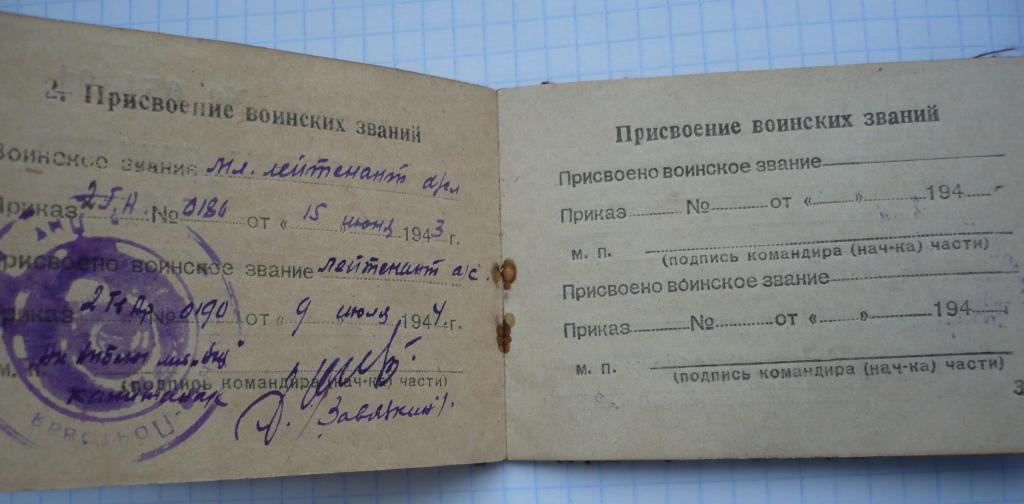 2. Присвоение воинских званий
Воинское звание мл. лейтенант
Приказ 2 Г.А. № 0180 от « 15 » июня 1943 г.
Присвоено воинское звание лейтенант а/с.
Приказ № 0190 от « 9 » июля 1944 г.
м. п.
(подпись командира (нач-ка) части)
Присвоение воинских званий
Присвоено воинское звание
Приказ № от « » 194
м. п.
(подпись командира (нач-ка) части)
Присвоено воинское звание
Приказ № от « » 194 г.
м. п.
(подпись командира (нач-ка) части)
3